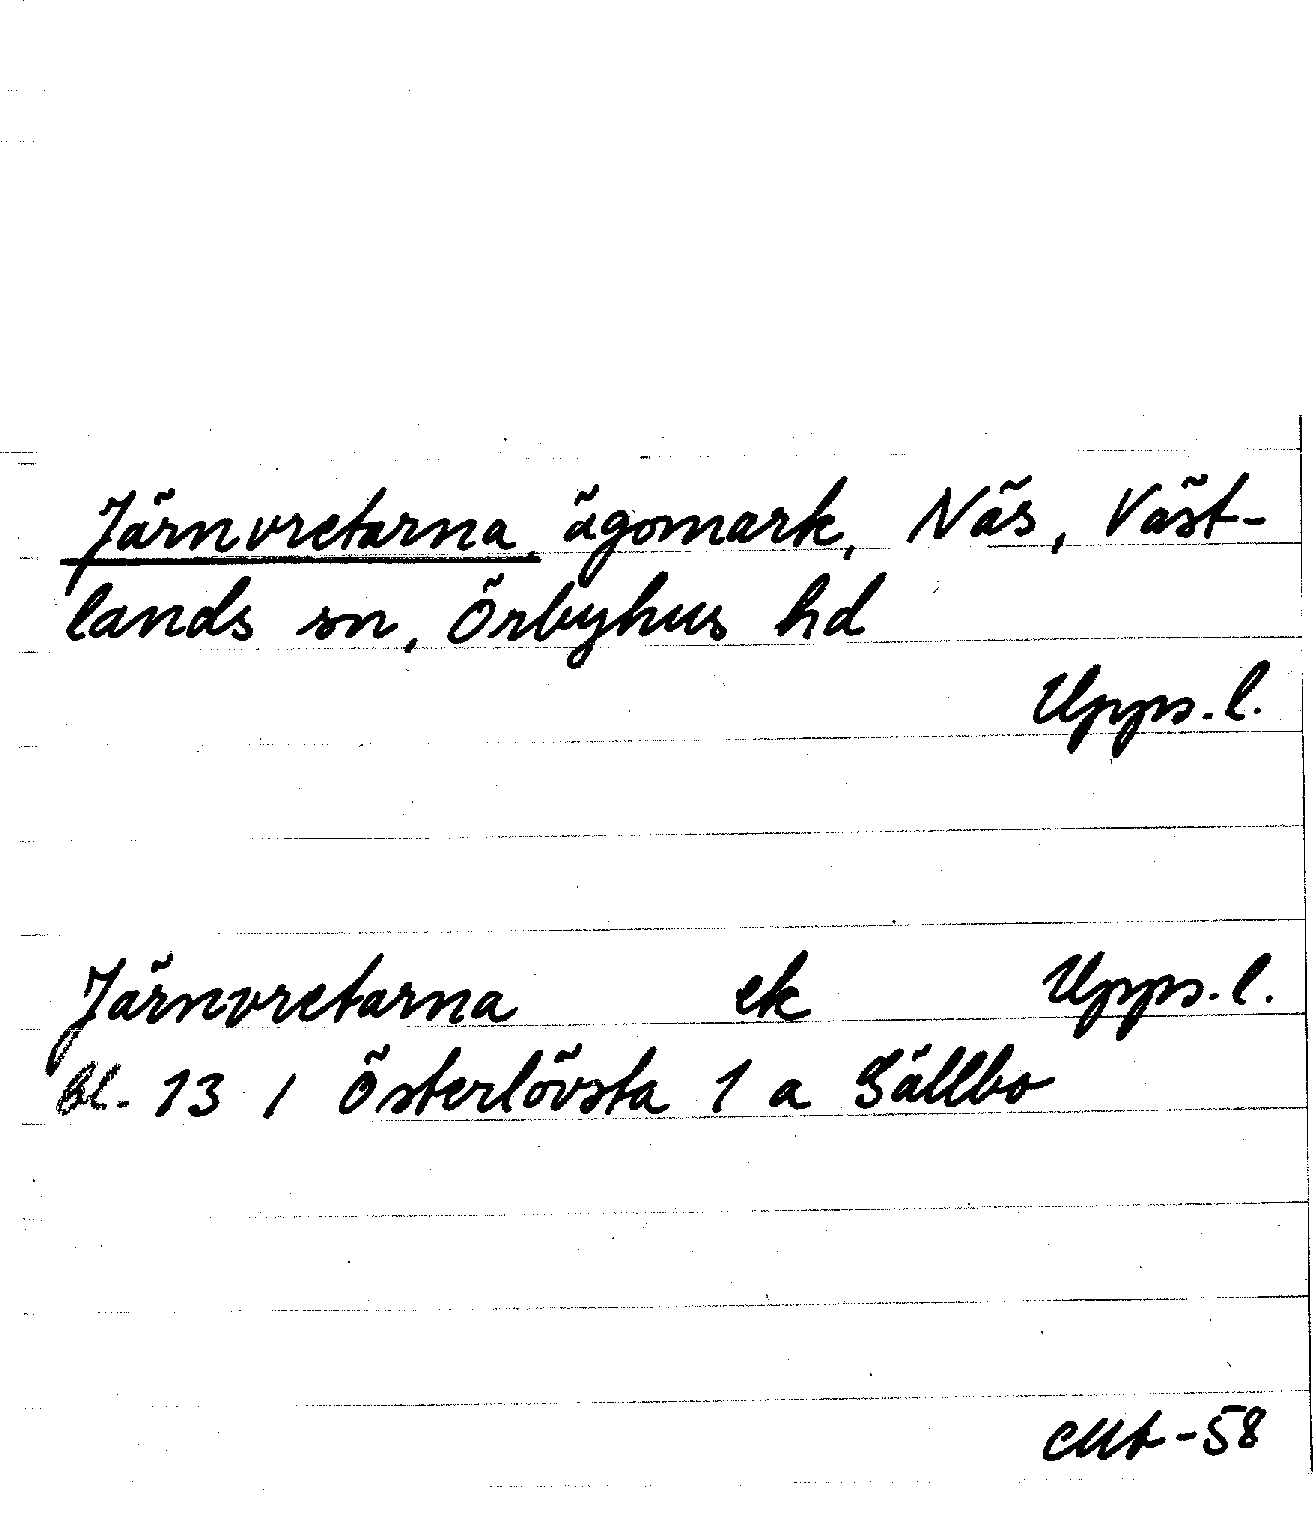 Järnvretarna, ägomark, Näs, Väst-
lands sn, Örbyhus hd
Upps. l.
Järnvretarna ek Upps. l.
bl. 13 / Österlövsta 1 a Sällbo
-58